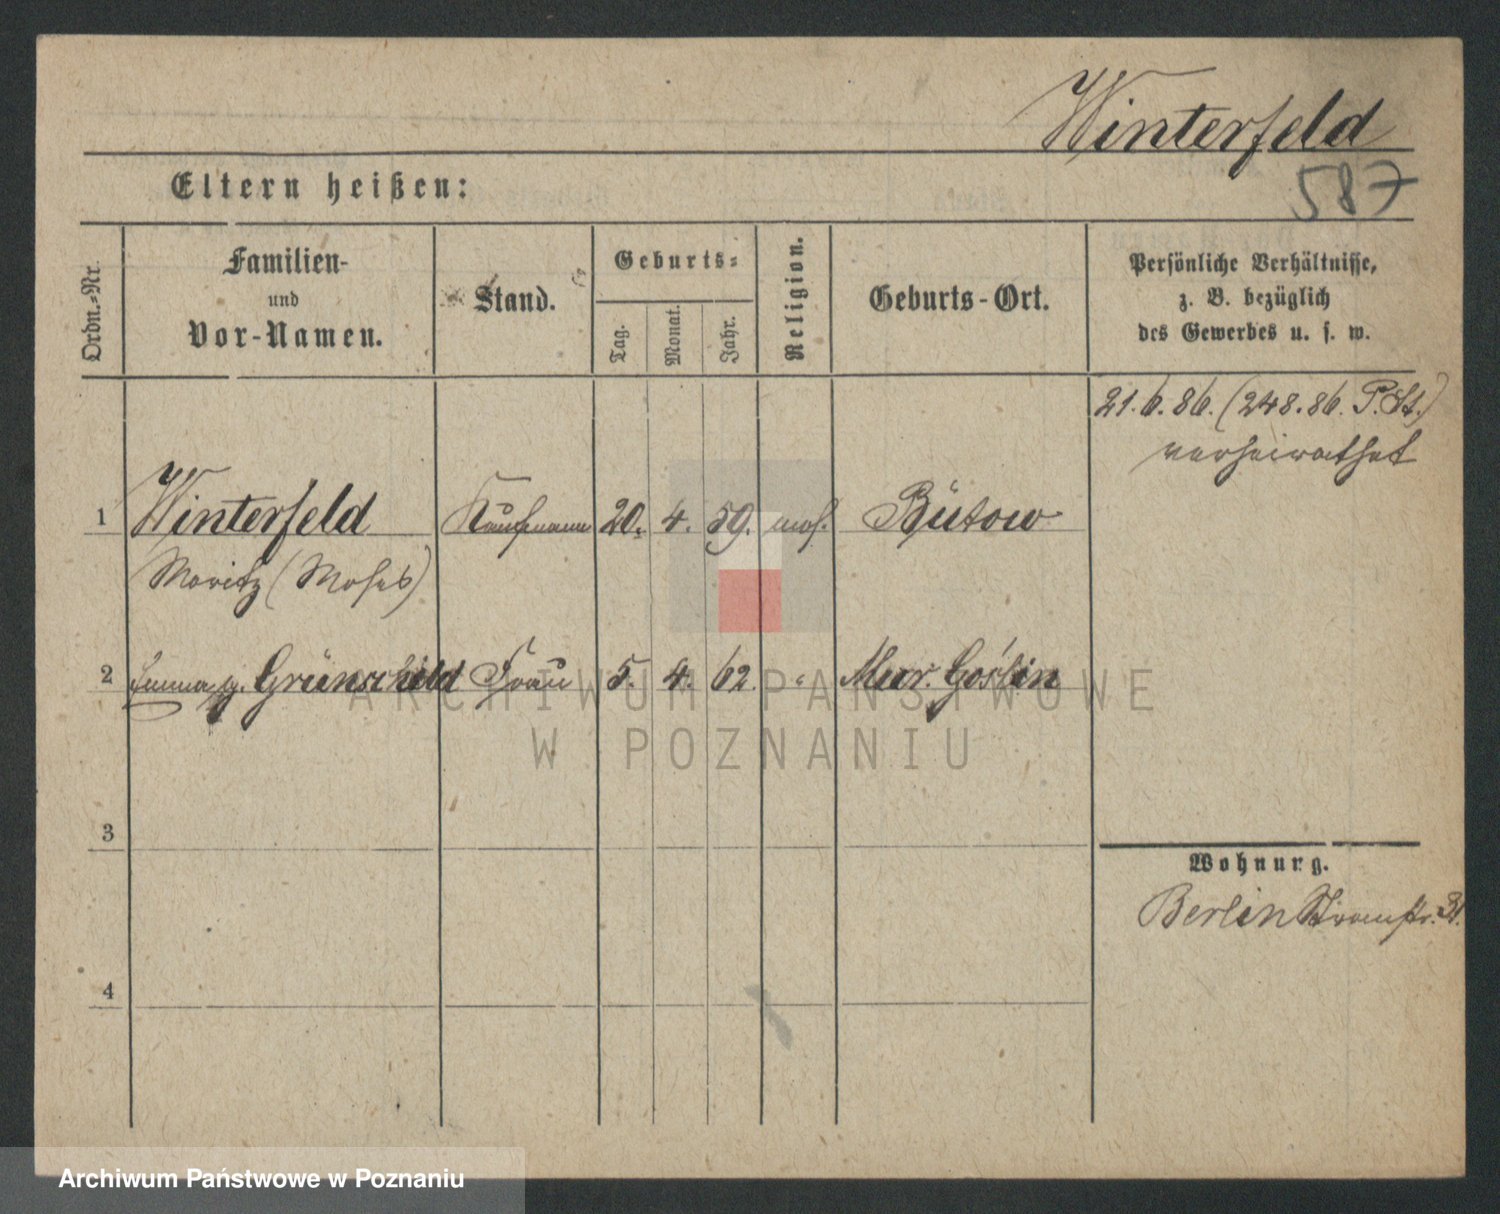 Winterfeld
587
Eltern heißen:
Ordn.-Nr.
Familien-
und
Vor-Namen.
Stand.
Geburts-
Tag.
Monat.
Jahr.
Religion.
Geburts-Ort.
Persönliche Verhältnisse,
z. B. bezüglich
des Gewerbes u. s. w.
21.6.86. (248.86. P.St.)
verheirathet
1 Winterfeld Kaufmann 20. 4. 59. mos. Bütow
Moritz (Moses)
2 Emma g. Grünschild Frau 5. 4. 62. " Mur. Goslin
ARCHIWUM PAŃSTWOWE
W POZNANIU
3
Wohnung.
Berlin 31.
4
Archiwum Państwowe w Poznaniu